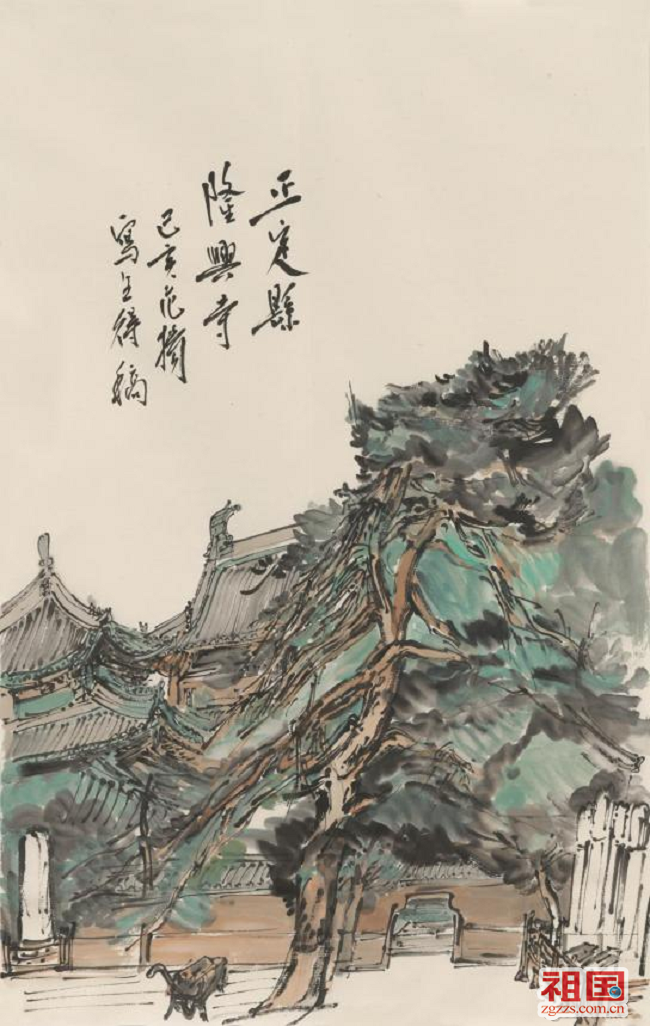 正定縣
隆興寺
己亥范揚
寫生得稿
祖国
zgzzs.com.cn